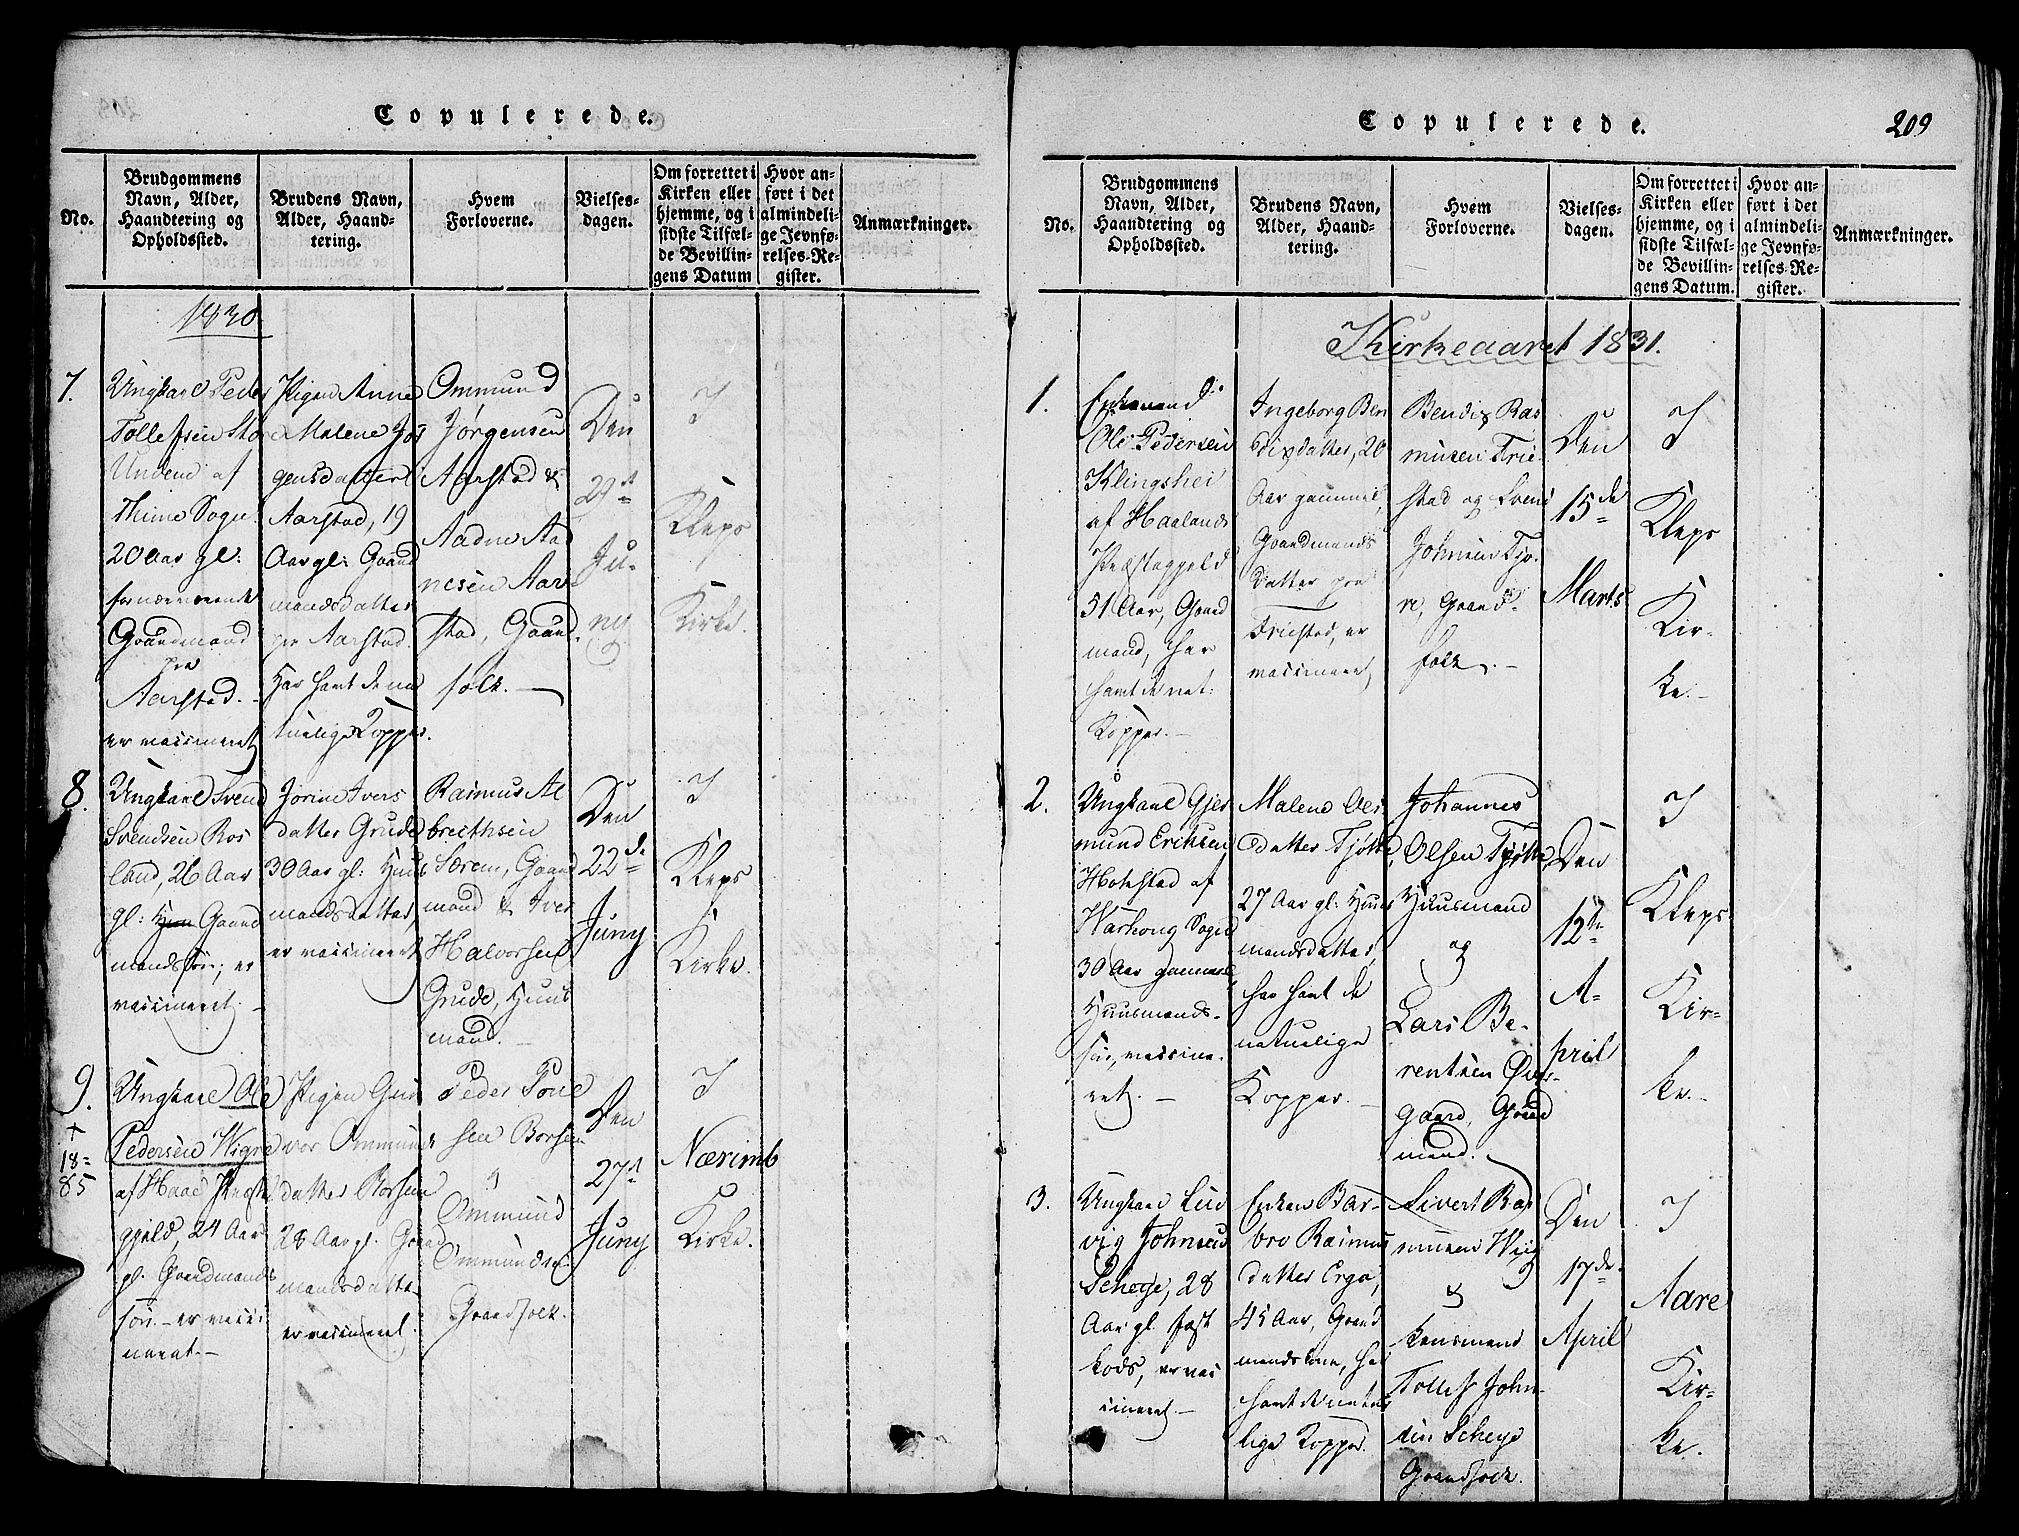 Copulerede.
No.
Brudgommens
Navn, Alder,
Haandtering og
Opholdssted.
Brudens Navn,
Alder, Haand-
tering.
Hvem
Forloverne.
Vielses-
dagen.
Om forrettet i
Kirken eller
hjemme, og i
sidste Tilfæl-
de Bevillin-
gens Datum
Hvor an-
ført i det
almindeli-
ge Jevnfø-
relses-Re-
gister.
Anmærkninger.
1830
7.
Ungkarl Peder
Tollefsen Sto
Undem af
Thime Sogn
20 Aar gl:
fornærværende
Gaardmand
paa
Aarstad.-
er vaccineret
Pigen Anne
Malene Jør
gensdatter
Aarstad, 19
Aar gl: Gaard
mandsdatter
paa Aarstad.
Har havt de na
turlige Kopper.
Ommund
Jørgensen
Aarstad &
Aadne Aad
nesen Aar
stad, Gaard
folk.
Den
21st
Ju-
ny
I
Kleps
Kirke.
8.
Ungkarl Svend
Svendsen Ros
land, 26 Aar
gl: Gaard
mandssøn, er
vaccineret.-
Jorine Ivers
datter Grude
30 Aar gl: Huus
mandsdatter,
er vaccineret
Rasmus Al
brecthsen
Særem, Gaard
mand & Iver
Halvorsen
Grude, Huus
mand.-
Den
22de
Juny
I
Kleps
Kirke.
9.
+
18=
85
Ungkarl Ole
Pedersen Wigre
af Haae Præste
gjeld, 24 Aar
gl. Gaardmands
søn.- er vacci
neret.-
Pigen Gun
vor Ommunds
datter Borsem
28 Aar gl. Gaard
mandsdatter
er vaccineret.
Peder Povel
sen Borsem
&
Ommund
Ommundsen
Gaardfolk.
Den
27de
Juny
I
Nærimb
Kirke.
Copulerede.
209
No.
Brudgommens
Navn, Alder,
Haandtering og
Opholdssted.
Brudens Navn,
Alder, Haand-
tering.
Hvem
Forloverne.
Vielses-
dagen.
Om forrettet i
Kirken eller
hjemme, og i
sidste Tilfæl-
de Bevillin-
gens Datum.
Hvor an-
ført i det
almindeli-
ge Jevnfø-
relses-Re-
gister.
Anmærkninger.
Kirkeaaret 1831.
1.
Enkemand
Ole Pedersen
Klingshei
af Haalands
Præstegjeld
51 Aar, Gaard
mand, har
havt de nat:
Kopper.-
Ingeborg Ben
dixdatter, 20
Aar gammel,
Gaardmands
datter paa
Friestad, er
vaccineret,
Bendix Ras
musen Frie-
stad og Svend
Johnsen Tjø-
re, Gaard-
folk.-
Den
15de
Marts
I
Kleps
Kir-
ke.-
2.
Ungkarl Gjer
mund Eriksen
Hotestad af
Warhoug Sogn
30 Aar gammel
Huusmands-
søn, vaccine-
ret.-
Malene Ols
datter Tjøtte,
27 Aar gl. Huus
mandsdatter,
har havt de
naturlige
Kopper.-
Johannes
Olsen Tjøtte,
Huusmand
og
Lars Be-
rentsen Øver-
gaard, Gaard
mand.
Den
12te
A-
pril
I
Kleps
Kir-
ke.-
3.
Ungkarl Lud
vig Johnsen
Scheye, 28
Aar gl. fast
kods, er vac
cineret.-
Enken Bar-
bro Rasmus
datter Erga,
45 Aar, Gaard
mandskone, har
havt de natur
lige Kopper.
Sivert Ras
musen Wiig
&
Lensmand
Tollef John-
sen Scheye
Gaardfolk.
Den
17de
April
I
Aare
Kir-
ke.